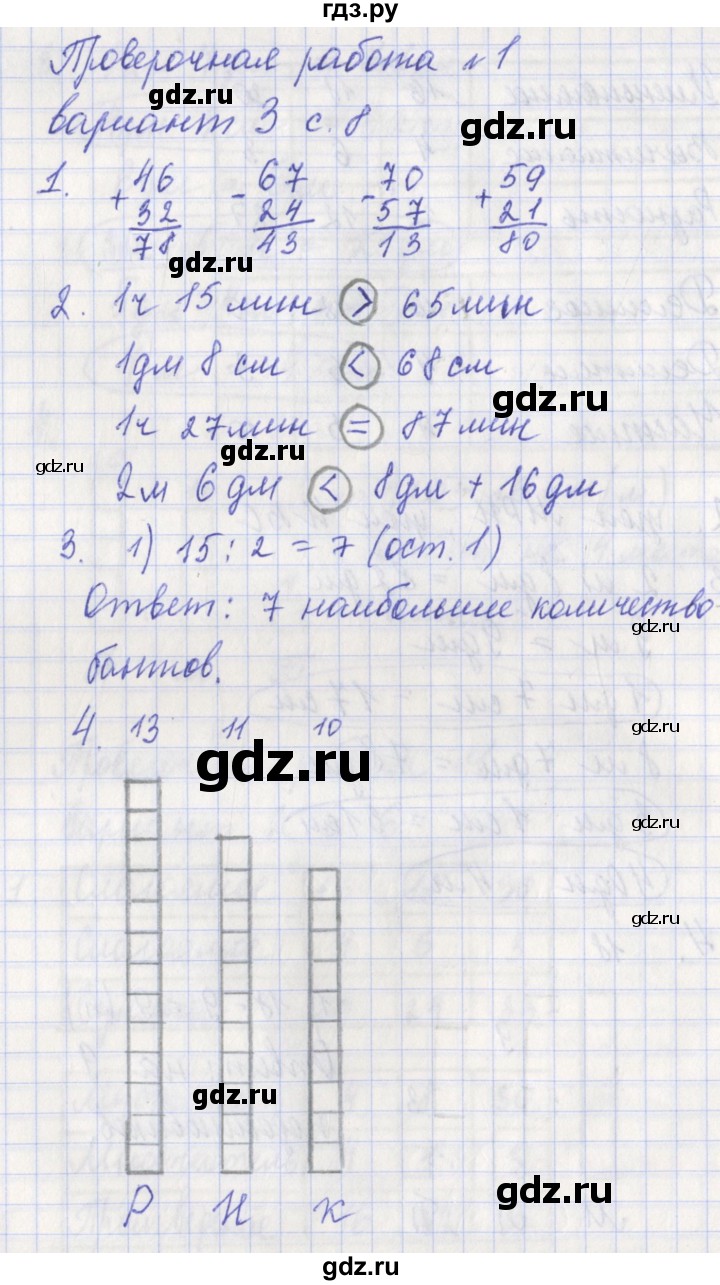 гдз.ру
Проверочная работа №1
gdz.ru
вариант 3 с. 8
gdz.ru
1. +46 -67 -70 +59
32 24 57 21
78 43 13 80
gdz.ru gdz.ru
2. 1ч 15мин > 65мин
1дм 8 см < 68см
gdz.ru
1ч 27мин = 87мин
gdz.ru
gdz.ru
2м 6дм < 8дм + 16дм
3. 1) 15 : 2 = 7 (ост. 1)
Ответ: 7 наибольшее количество
gdz.ru
бантов.
4. 13 11 10
gdz.ru
gdz.ru
gdz.ru
gdz.ru
gdz.ru
gdz.ru
Р Н К
gdz.ru